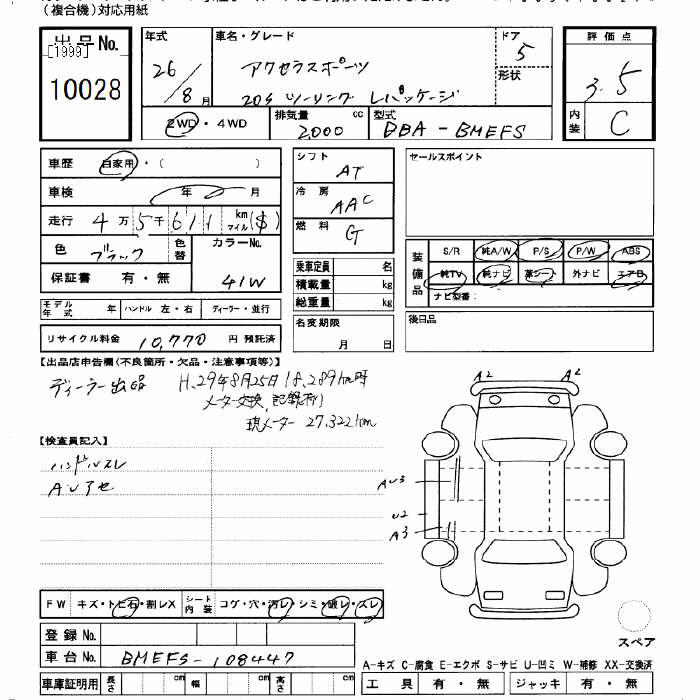 （複合機）対応用紙
出品No.
[1999]
10028
年式 26/8月
車名・グレード アクセラスポーツ
20S ツーリング Lパッケージ
ドア 5
形状
評価点 3.5
内装 C
2WD・4WD
排気量 2000 cc
型式 DBA-BMEFS
車歴 自家用・（ ）
車検 年 月
走行 4万5千611 km マイル($)
色 ブラック 色替 カラーNo. 41W
保証書 有・無
モデル年式 ハンドル 左・右 ディーラー・並行
リサイクル料金 10,770 円 預託済
シフト AT
冷房 AAC
燃料 G
乗車定員 名
積載量 kg
総重量 kg
名変期限 月 日
セールスポイント
装備品 S/R 純A/W P/S P/W ABS
純TV 純ナビ 革シート 外ナビ エアB
ナビ型番：
後日品
【出品店申告欄（不良箇所・欠品・注意事項等）】
ディーラー出品 H.29年8月25日 18,289km時
メーター交換(記録有)
現メーター 27,322km
【検査員記入】
ハンドルスレ
AUアセ
A2 A2
AU3
U2
A3
FW キズ・トビ石・割レX シート内装 コゲ・穴・汚レ・シミ・破レ・スレ
登録No.
車台No. BMEFS-108447
車庫証明用 長さ cm 幅 cm 高さ cm
スペア
A-キズ C-腐食 E-エクボ S-サビ U-凹ミ W-補修 XX-交換済
工具 有・無 ジャッキ 有・無